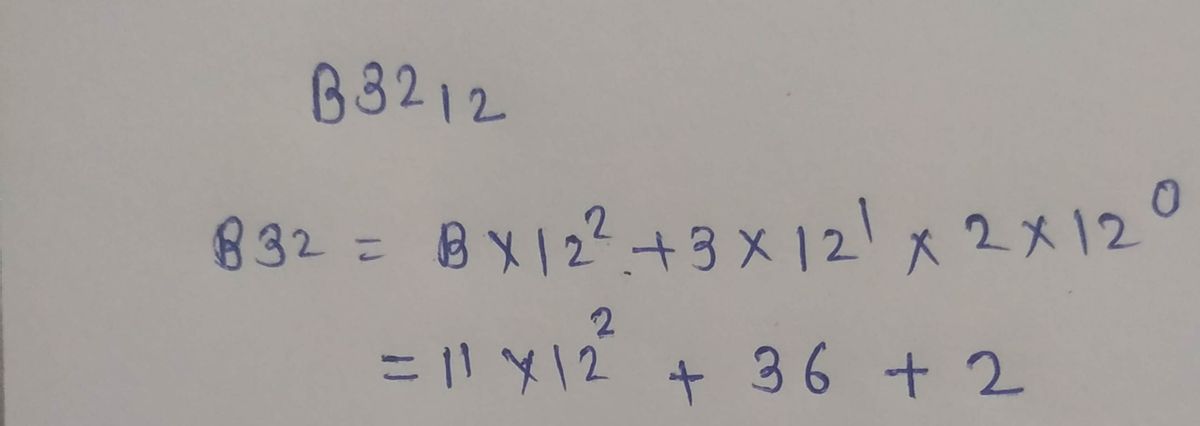 B32₁₂
B32 = B × 12² + 3 × 12¹ × 2 × 12⁰
= 11 × 12² + 36 + 2